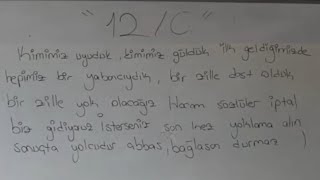 "12/C"
Kimimiz uyuduk, kimimiz güldük ilk geldiğimizde
hepimiz bir yabancıydık, bir zille dost olduk
bir zille yok olacağız Hanım sözlüler iptal
biz gidiyoruz isterseniz son kez yoklama alın
sonuçta yolcudur abbas, bağlasan durmaz